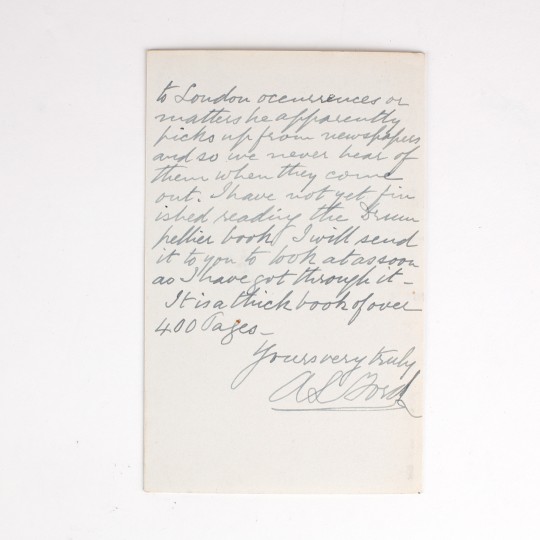 to London occurrences or
matters he apparently
picks up from newspapers
and so we never hear of
them when they come
out. I have not yet fin
ished reading the Drum
pellier book I will send
it to you to look at as soon
as I have got through it –
It is a thick book of over
400 Pages –
Yours very truly
A L Ford